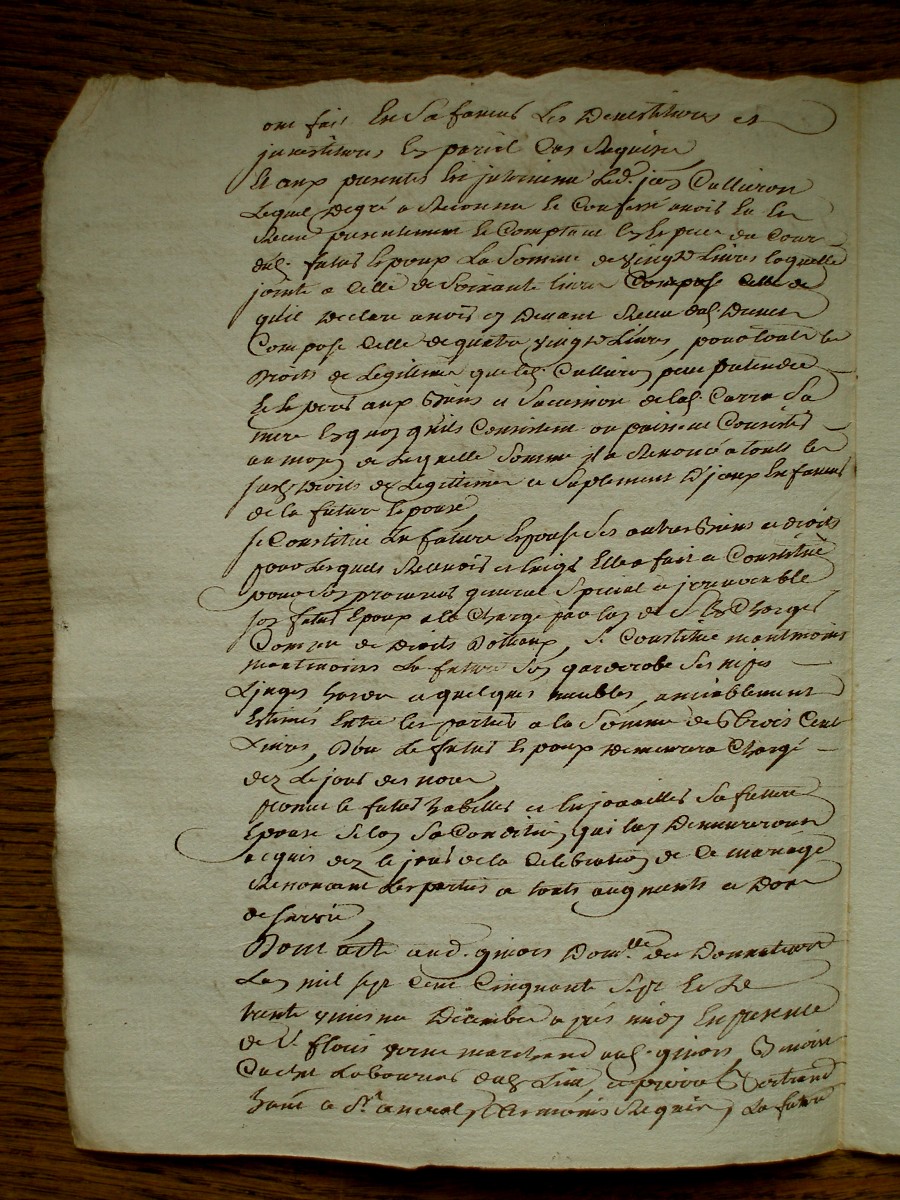 ont fait En Sa faveur Les Devestitures et
jnvestitures En pareil Cas Requise
Et aux presentes Est jntervenu Led. jean Cullieron
Lequel De gré a Reconnu Et Confessé avoir Eu Et
Receu presentement Et Comptant En Espece du Cour
dud. futur Epoux La Somme de vingt Livres laquelle
jointe a Celle de Soixante livres Compose Celle de
quil Declare avoir Cy Devant Receu dud.
Compose Celle de quatre vingt Livres, pour touts les
Droits de Legitime que led. Cullieron peut pretendre
Et Esperer aux Biens et Succession de lad. Carra Sa
mere En quoy quils Consistent ou puissent Consister
au moyen de Laquelle Somme jl a Renoncé a touts les
susd. Droits de Legittime et Suplement D'jceux En faveur
de la future Epouse
Se Constitue La future Epouse Ses autres Biens et droits
pour Lesquels Recevoir et Exiger Elle a fait et Constitué
pour Son procureur general Special et jrrevocable
Son futur Epoux a la Charge par luy de
Comme de Droits Dottaux, Se Constitue neantmoins
neantmoins La future Son garderobe Ses nipes
Linges hardes et quelques meubles, amiablement
Estimés Entre les parties a la Somme de Trois Cent
Livres, Dont Le futur Epoux Demeurera Chargé
dez Le jour des noces
promet le futur habiller et Enjoailler Sa future
Epouse Selon Sa Condition, qui luy Demeureront
acquis dez le jour de la Celebration de Ce mariage
Renonceant Les parties a touts augments et Don
de Survie,
Dont acte aud. Domlle des
Lan mil sept Cent Cinquante Sept Et Le
trente Decembre apres midy En presence
de Sr floris marchand aud. Benoist
Laboureur dud. Lieu, et pierre Bertrand
Requis, La future